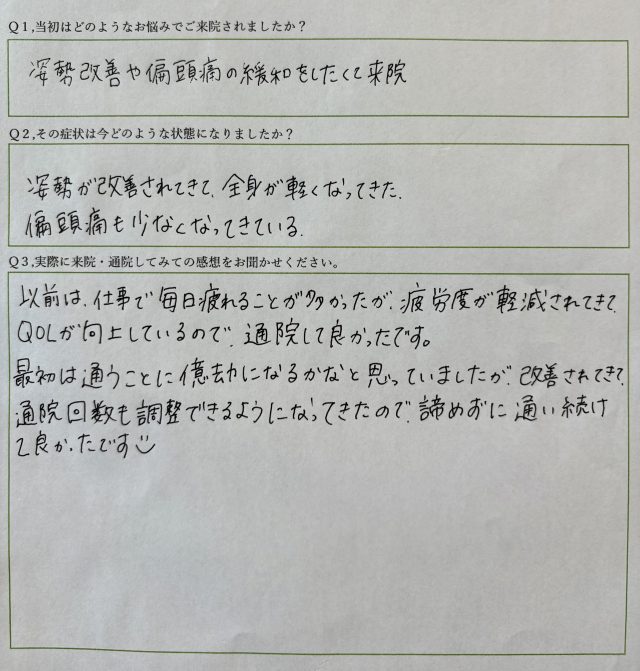 Q1,当初はどのようなお悩みでご来院されましたか？
姿勢改善や偏頭痛の緩和をしたくて来院
Q2,その症状は今どのような状態になりましたか？
姿勢が改善されてきて、全身が軽くなってきた。
偏頭痛も少なくなってきている。
Q3,実際に来院・通院してみての感想をお聞かせください。
以前は、仕事で毎日疲れることが多かったが、疲労度が軽減されてきて、
QOLが向上しているので、通院して良かったです。
最初は通うことに億劫になるかなと思っていましたが、改善されてきて、
通院回数も調整できるようになってきたので、諦めずに通い続け
て良かったです